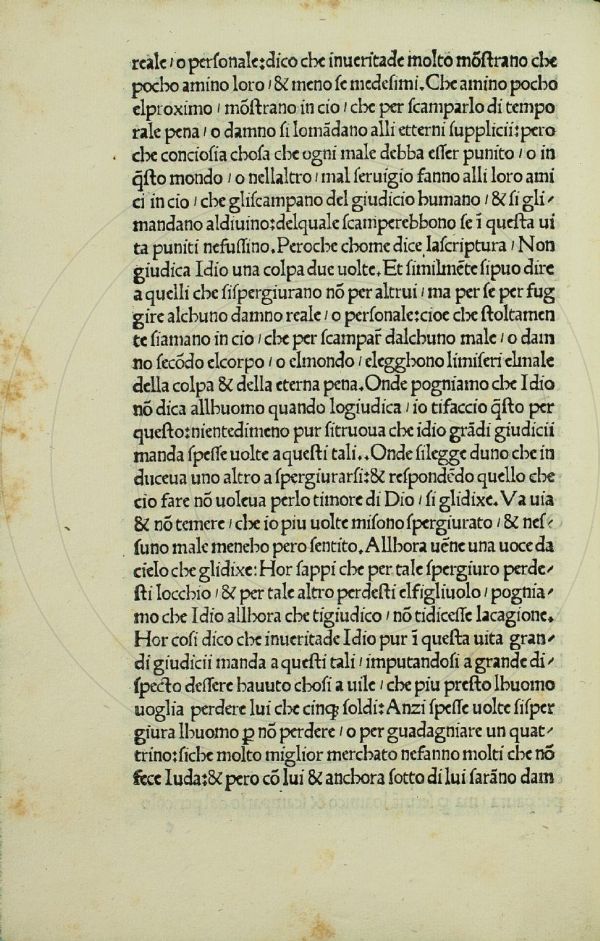 reale / o personale: dico che inueritade molto mõstrano che
pocho amino loro / & meno se medesimi. Che amino pocho
elproximo / mõstrano in cio / che per scamparlo di tempo
rale pena / o damno si lomãdano alli etterni supplicii: pero
che conciosia chosa che ogni male debba esser punito / o in
q̃sto mondo / o nellaltro / mal seruigio fanno alli loro ami
ci in cio / che gliscampano del giudicio humano / & si gli⸗
mandano aldiuino: delquale scamperebbono se ĩ questa ui
ta puniti nefussino. Peroche chome dice lascriptura / Non
giudica Idio una colpa due uolte. Et similmẽte sipuo dire
a quelli che sispergiurano nõ per altrui / ma per se per fug
gire alchuno damno reale / o personale: cioe che stoltamen
te siamano in cio / che per scampar̃ dalchuno male / o dam
no secõdo elcorpo / o elmondo / elegghono limiseri elmale
della colpa & della eterna pena. Onde pogniamo che Idio
nõ dica allhuomo quando logiudica / io tifaccio q̃sto per
questo: nientedimeno pur sitruoua che idio grãdi giudicii
manda spesse uolte a questi tali.. Onde silegge duno che in
duceua uno altro a spergiurarsi: & respondẽdo quello che
cio fare nõ uoleua perlo timore di Dio / si glidixe. Va uia
& nõ temere / che io piu uolte misono spergiurato / & nes⸗
suno male meneho pero sentito. Allhora uẽne una uoce da
cielo che glidixe: Hor sappi che per tale spergiuro perde⸗
sti locchio / & per tale altro perdesti elfigliuolo / pognia⸗
mo che Idio allhora che tigiudico / nõ tidicesse lacagione.
Hor cosi dico che inueritade Idio pur ĩ questa uita gran⸗
di giudicii manda a questi tali / imputandosi a grande di⸗
specto dessere hauuto chosi a uile / che piu presto lhuomo
uoglia perdere lui che cinq; soldi: Anzi spesse uolte sisper
giura lhuomo ꝑ nõ perdere / o per guadagniare un quat⸗
trino: siche molto miglior merchato nefanno molti che nõ
fece Iuda: & pero cõ lui & anchora sotto di lui sarãno dam